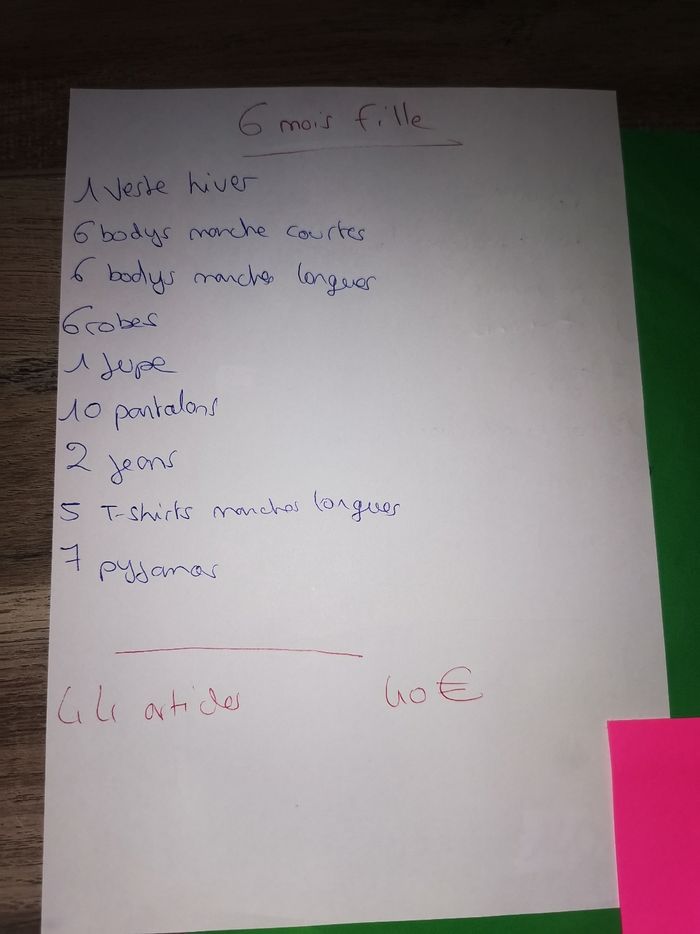 6 mois fille
1 Veste hiver
6 bodys manche courtes
6 bodys manches longues
6 robes
1 Jupe
10 pantalons
2 jeans
5 T-shirts manches longues
7 pyjamas
44 articles 40€